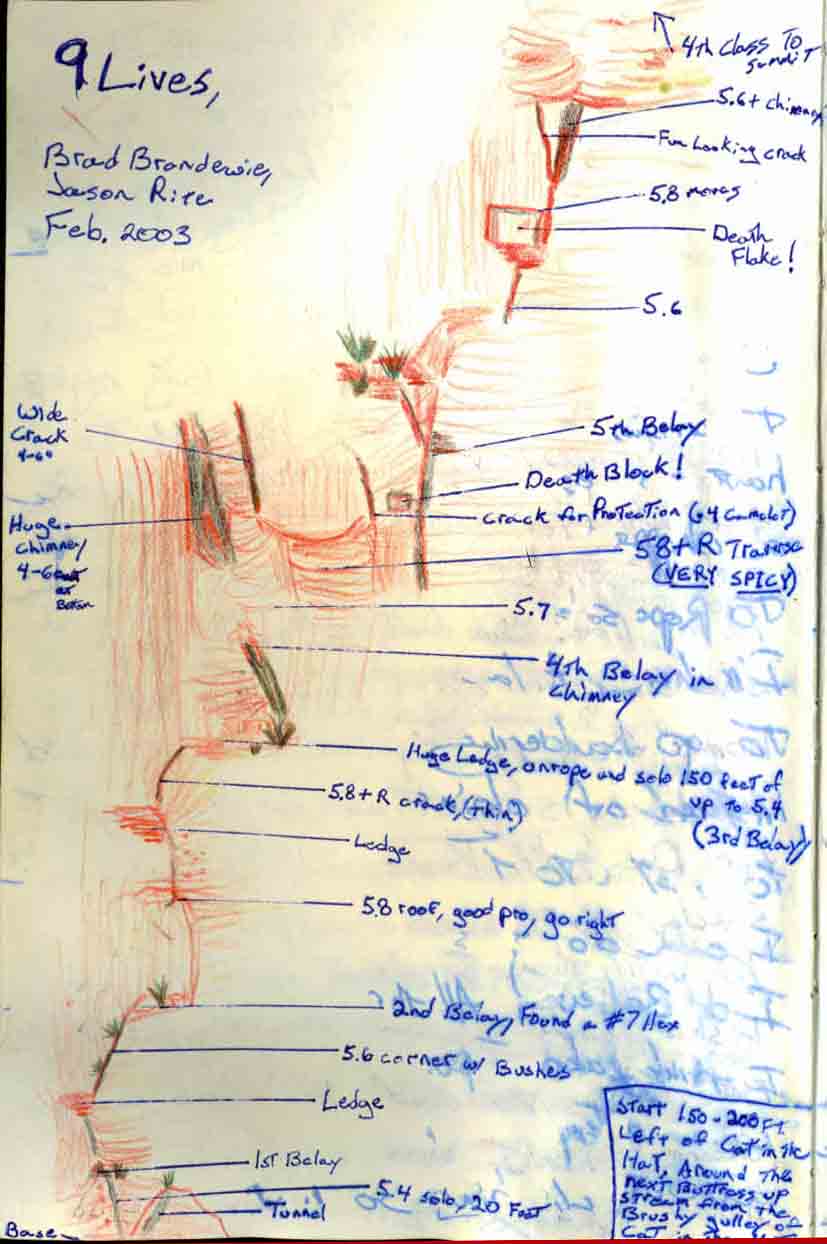 9 Lives,
Brad Brandewie,
Jason Rite
Feb. 2003
4th Class To
Summit
5.6+ chimney
Fun Looking crack
5.8 moves
Death
Flake!
5.6
Wide
Crack
4-6"
5th Belay
Death Block!
Crack for Protection (.4 Camelot)
Huge
Chimney
4-6 feet
at
Bottom
5.8+ R Traverse
(VERY SPICY)
5.7
4th Belay in
Chimney
Huge Ledge, unrope and solo 150 feet of
up to 5.4
(3rd Belay)
5.8+ R crack, (thin)
Ledge
5.8 roof, good pro, go right
2nd Belay, Found a #7 Hex
5.6 corner w/ Bushes
Ledge
1st Belay
5.4 solo, 20 Feet
Tunnel
Base
Start 150-200 Ft.
Left of Cat in the
Hat, Around the
next Buttress up
stream from the
Brushy gulley of
Cat in the